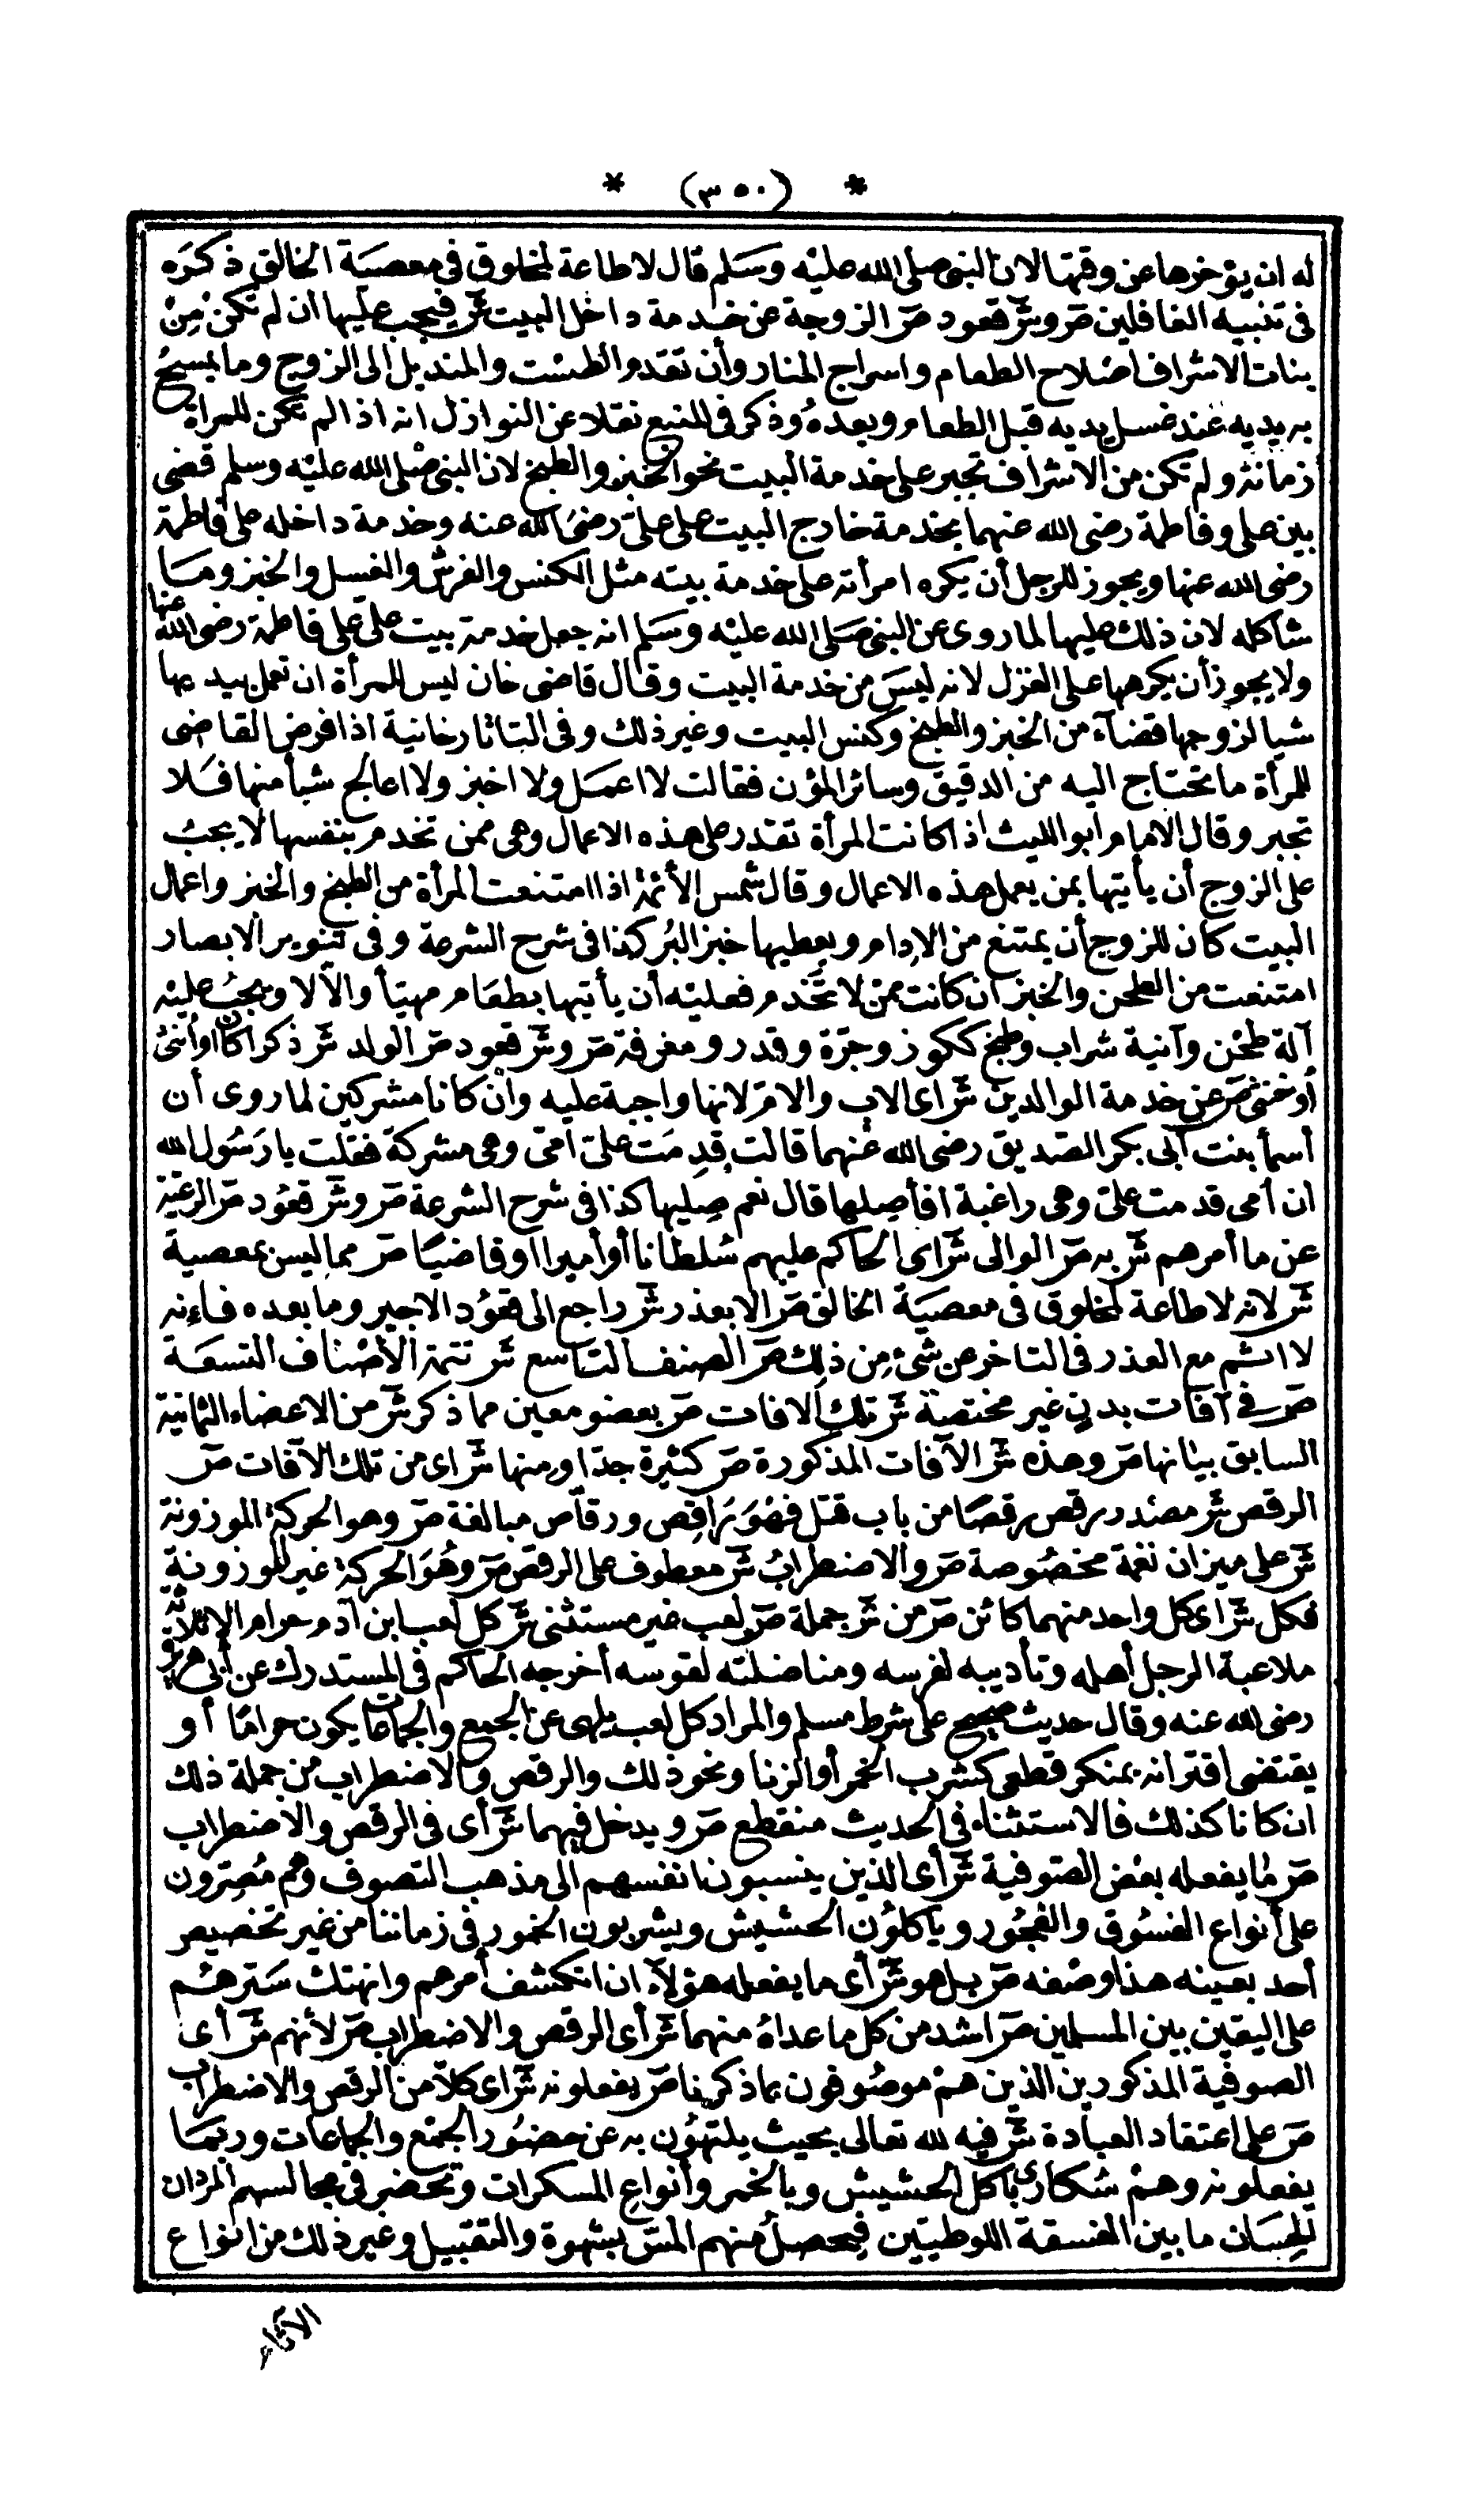 * (٣٥٠) *
له ان يؤخرها عن وقتها لان النبى صلى الله عليه وسلم قال لا طاعة لمخلوق فى معصية الخالق ذكره
فى تنبيه الغافلين صر وشر قعود صر الزوجة عن خدمة داخل البيت شر فيجب عليها ان لم تكن من
بنات الاشراف اصلاح الطعام واسراج المنار وأن تقدم الطشت والمنديل الى الزوج وما يمسح
به يديه عند غسل يديه قبل الطعام وبعده وذكر فى المنبع نقلا عن النوازل انه اذا لم تكن للمرأة
زمانة ولم تكن من الاشراف تجبر على خدمة البيت نحو الخبز والطبخ لان النبى صلى الله عليه وسلم قضى
بين على وفاطمة رضى الله عنهما بخدمة خارج البيت على على رضى الله عنه وخدمة داخله على فاطمة
رضى الله عنها ويجوز للرجل أن يكره امرأته على خدمة بيته مثل الكنس والفرش والغسل والخبز وما
شاكله لان ذلك عليها لما روى عن النبى صلى الله عليه وسلم انه جعل خدمة بيت على على فاطمة رضى الله عنها
ولا يجوز أن يكرهها على الغزل لانه ليس من خدمة البيت وقال قاضى خان ليس للمرأة ان تعمل بيدها
شيا لزوجها قضاء من الخبز والطبخ وكنس البيت وغير ذلك وفى التاتارخانية اذا فرض القاضى
للمرأة ما تحتاج اليه من الدقيق وسائر المؤن فقالت لا اعمل ولا اخبز ولا اعالج شيأ منها فلا
تجبر وقال الامام ابو الليث اذا كانت المرأة تقدر على هذه الاعمال وهى ممن تخدم بنفسها لا يجب
على الزوج أن يأتيها بمن يعمل هذه الاعمال وقال شمس الأئمة اذا امتنعت المرأة من الطبخ والخبز واعمال
البيت كان للزوج أن يمتنع من الإدام ويعطيها خبز البر كذا فى شرح الشرعة وفى تنوير الابصار
امتنعت من الطحن والخبز ان كانت ممن لا تخدم فعليه أن يأتيها بطعام مهيأ والا لا ويجب عليه
آلة طحن وآنية شراب وطبخ ككوز وجرة وقدر ومغرفة صر وشر قعود صر الولد شر ذكرا كان او أنثى
أو خنثى صر عن خدمة الوالدين شر اى الاب والام لانها واجبة عليه وان كانا مشركين لما روى أن
أسما بنت أبى بكر الصديق رضى الله عنهما قالت قدمت على امى وهى مشركة فقلت يا رسول الله
ان أمى قدمت على وهى راغبة افأصلها قال نعم صليها كذا فى شرح الشرعة صر وشر قعود صر الرعية
عن ما أمرهم شر به صر الوالى شر اى الحاكم عليهم سلطانا أو أميرا أو قاضيا صر مما ليس بمعصية
شر لانه لا طاعة لمخلوق فى معصية الخالق صر الا بعذر شر راجع الى قعود الاجير وما بعده فإنه
لا اثم مع العذر فى التاخر عن شئ من ذلك صر الصنف التاسع شر تتمة الأصناف التسعة
صر فى آفات بدن غير مختصة شر تلك الافات صر بعضو معين مما ذكر شر من الاعضاء الثمانية
السابق بيانها صر وهذه شر الآفات المذكورة صر كثيرة جدا ومنها شر اى من تلك الآفات صر
الرقص شر مصدر رقص رقصا من باب قتل فهو راقص ورقاص مبالغة صر وهو الحركة الموزونة
شر على ميزان نغمة مخصوصة صر والاضطراب شر معطوف على الرقص صر وهو الحركة غير الموزونة
فكل شر اى كل واحد منهما كائن صر من شر جملة صر لعب غير مستثنى شر كل لعب ابن آدم حرام الا ثلاثة
ملاعبة الرجل أهله وتأديبه لفرسه ومناضلته لقوسه أخرجه الحاكم فى المستدرك عن أبى هريرة
رضى الله عنه وقال حديث صحيح على شرط مسلم والمراد كل لعب يلهى عن الجمع والجماعات يكون حراما أو
يقتضى اقترانه بمنكر قطعى كشرب الخمر أو الزنا ونحو ذلك والرقص والاضطراب من جملة ذلك
ان كانا كذلك فالاستثناء فى الحديث منقطع صر ويدخل فيهما شر أى فى الرقص والاضطراب
صر ما يفعله بعض الصوفية شر أى الذين ينسبون انفسهم الى مذهب التصوف وهم مصرون
على أنواع الفسوق والفجور وياكلون الحشيش ويشربون الخمور فى زماننا من غير تخصيص
أحد بعينه هذا وصفه صر بل هو شر أى ما يفعله هؤلاء ان انكشف أمرهم وانهتك سترهم
على اليقين بين المسلمين صر اشد من كل ما عداه منهما شر أى الرقص والاضطراب صر لأنهم شر أى
الصوفية المذكورين الذين هم موصوفون بما ذكرنا صر يفعلونه شر اى كلا من الرقص والاضطراب
صر على اعتقاد العبادة شر فيه لله تعالى بحيث يلتهون به عن حضور الجمع والجماعات وربما
يفعلونه وهم سكارى باكل الحشيش وبالخمر وأنواع المسكرات وتحضر فى مجالسهم المردان
للحسان ما بين الفسقة اللوطيين فيحصل منهم المس بشهوة والتقبيل وغير ذلك من انواع